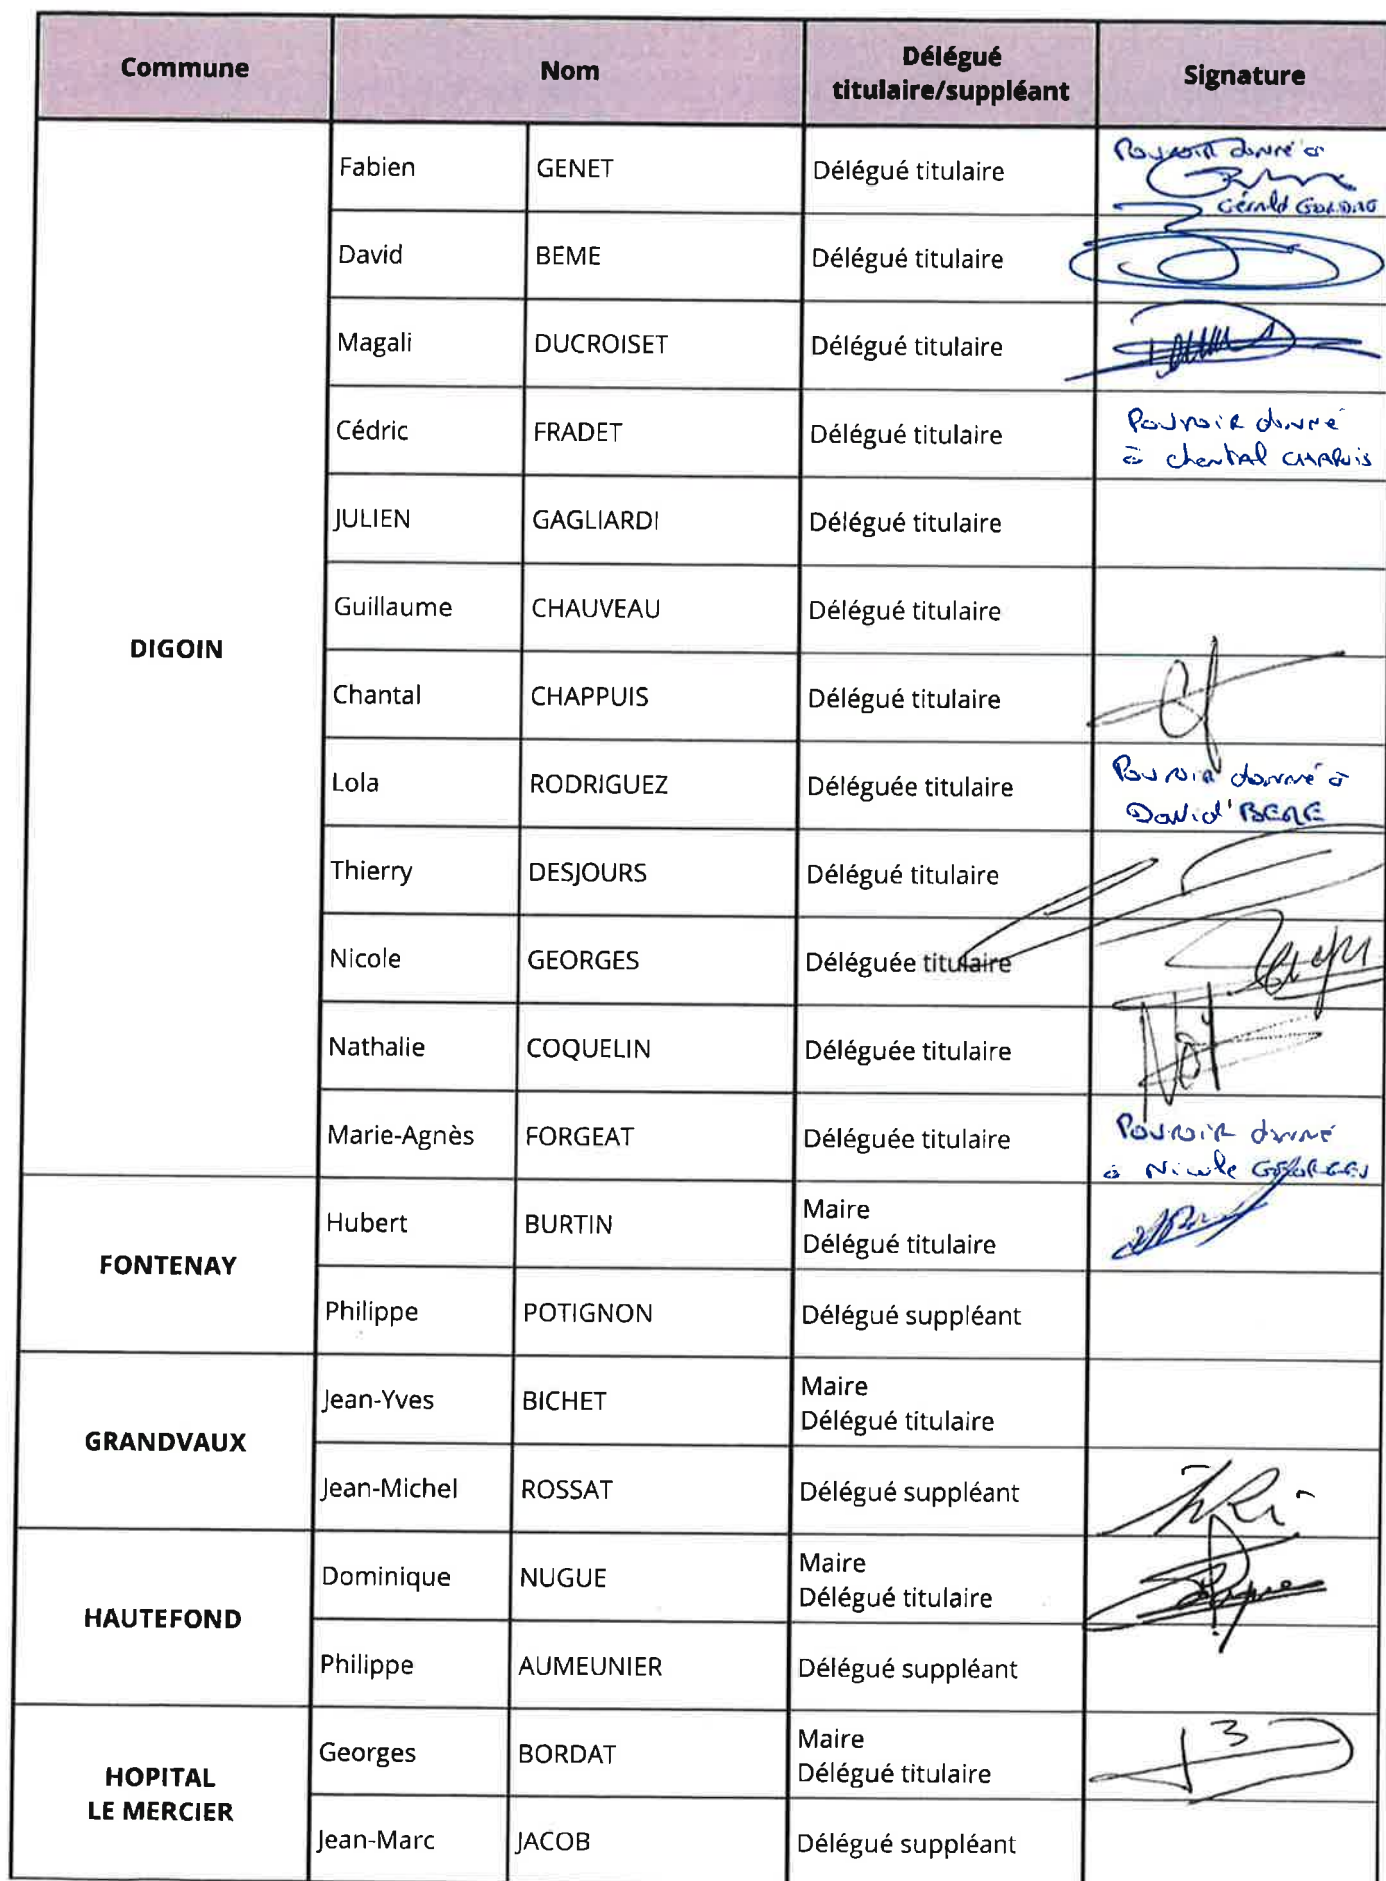 Commune Nom Délégué titulaire/suppléant Signature
DIGOIN
Fabien GENET Délégué titulaire Pouvoir donné à
Gérald
David BEME Délégué titulaire
Magali DUCROISET Délégué titulaire
Cédric FRADET Délégué titulaire Pouvoir donné
à chantal CHAPUIS
JULIEN GAGLIARDI Délégué titulaire
Guillaume CHAUVEAU Délégué titulaire
Chantal CHAPPUIS Délégué titulaire
Lola RODRIGUEZ Déléguée titulaire Pouvoir donné à
David BEME
Thierry DESJOURS Délégué titulaire
Nicole GEORGES Déléguée titulaire
Nathalie COQUELIN Déléguée titulaire
Marie-Agnès FORGEAT Déléguée titulaire Pouvoir donné
à Nicole GEORGES
FONTENAY
Hubert BURTIN Maire
Délégué titulaire
Philippe POTIGNON Délégué suppléant
GRANDVAUX
Jean-Yves BICHET Maire
Délégué titulaire
Jean-Michel ROSSAT Délégué suppléant
HAUTEFOND
Dominique NUGUE Maire
Délégué titulaire
Philippe AUMEUNIER Délégué suppléant
HOPITAL
LE MERCIER
Georges BORDAT Maire
Délégué titulaire
Jean-Marc JACOB Délégué suppléant